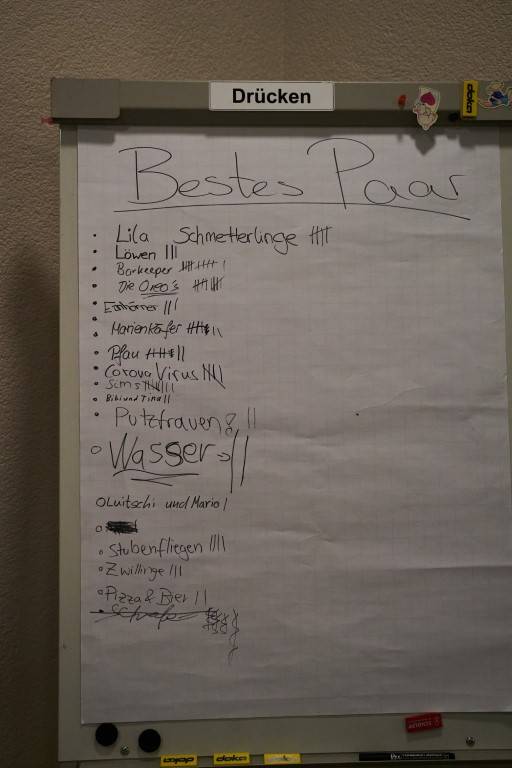 Drücken
doka
Bestes Paar
Lila Schmetterlinge ||||
Löwen |||
Barkeeper |||| |||| |
Die Oreo's |||| ||||
Einhörner |||
Marienkäfer |||| |||
Pfau |||| ||
Corova Virus ||||
Sims
Bibi und Tina ||
Putzfrauen ||
Wasser → ||
Luitschi und Mario |
Stubenfliegen ||||
Zwillinge |||
Pizza & Bier ||
doka
doka